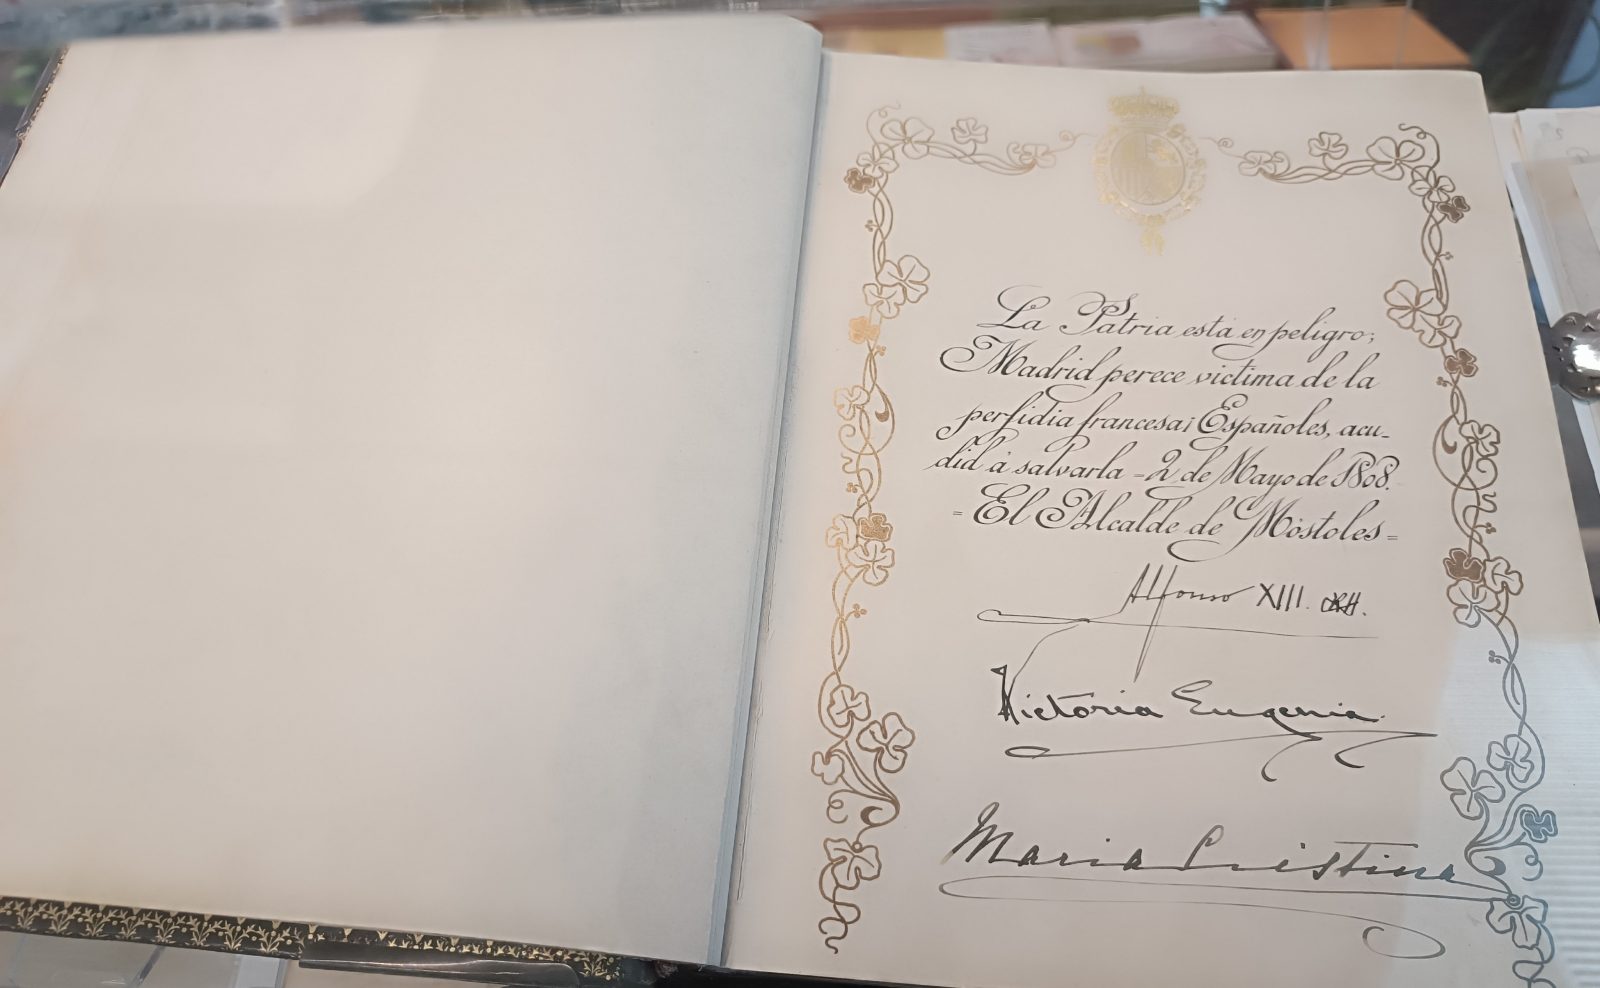 La Patria está en peligro;
Madrid perece victima de la
perfidia francesa; Españoles, acu-
did á salvarla = 2 de Mayo de 1808.
= El Alcalde de Móstoles =
Alfonso XIII.
Victoria Eugenia.
Maria Cristina